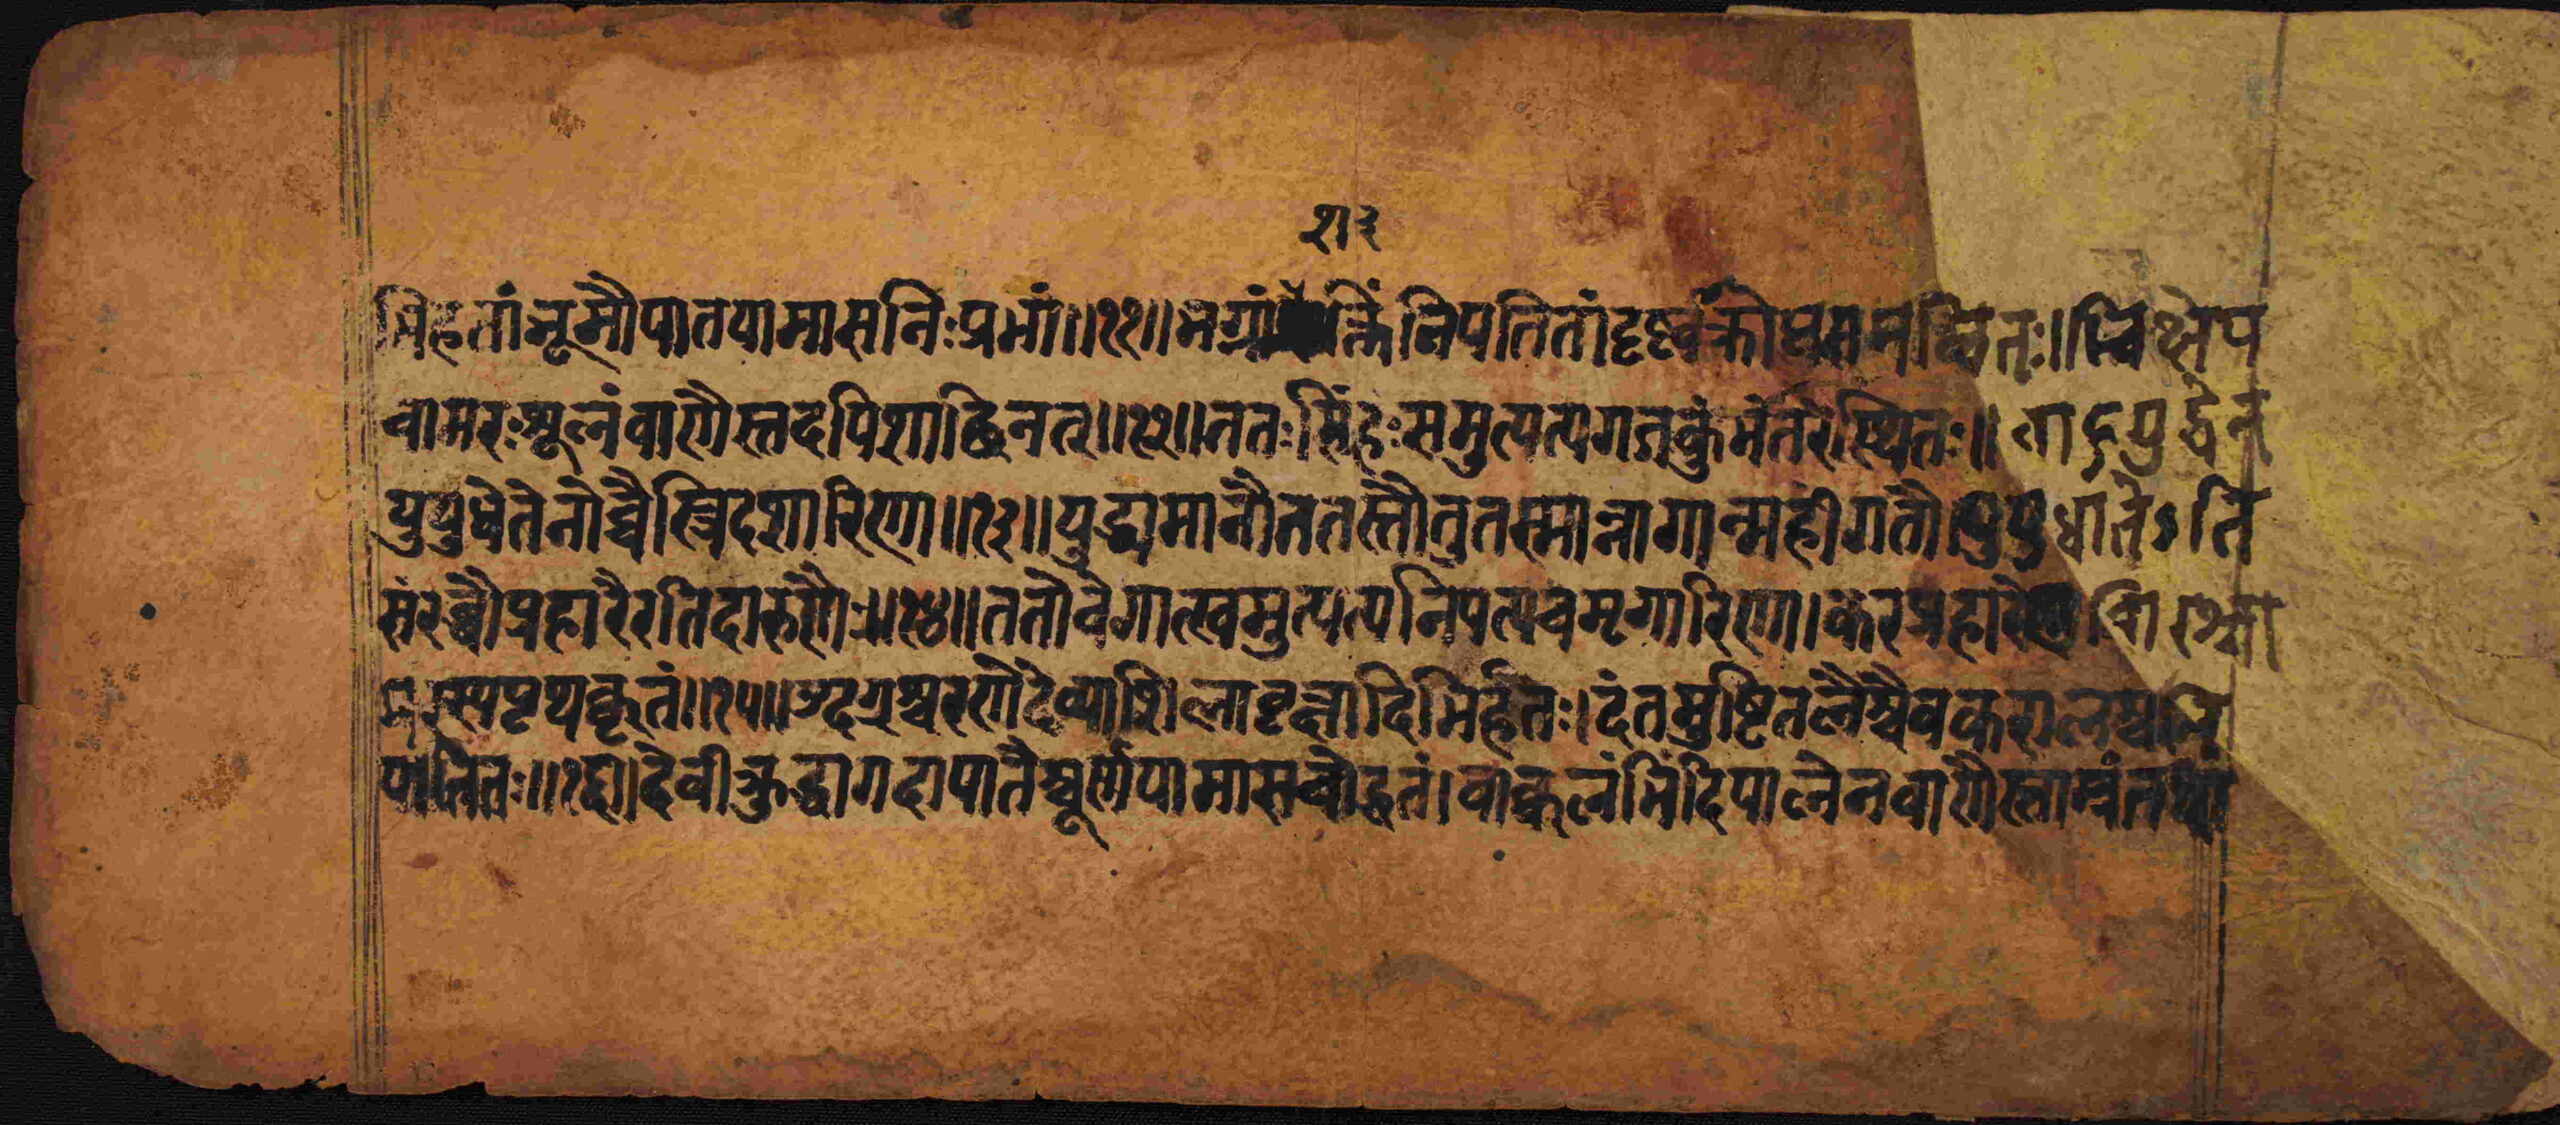 श २
भिहतां भूमौ पातयामास निःप्रभां॥११॥ भग्नां क्तिं निपतितां दृष्ट्वा क्रोधसमन्वितः। चिक्षेप
चामरः शूलं बाणैस्तदपि शाच्छिनत्॥१२॥ ततः सिंहः समुत्पत्य गजकुंभंतरे स्थितः॥ बाहुयुद्धेन
युयुधे तेनोच्चैस्त्रिदशारिणा॥१३॥ युद्ध्यमानौ ततस्तौ तु तस्मान्नागान्महीं गतौ। युयुधातेऽति
संरब्धौ प्रहारैरतिदारुणैः॥१४॥ ततो वेगात्खमुत्पत्य निपत्य च मृगारिणा। करप्रहारेण शिरश्चा
मरस्य पृथक्कृतं॥१५॥ उदग्रश्च रणे देव्या शिलावृक्षादिभिर्हतः। दंतमुष्टितलैश्चैव करालश्च नि
पातितः॥१६॥ देवी क्रुद्धा गदापातैश्चूर्णयामास चोद्धतं। वाष्कलं भिंदिपालेन बाणैस्ताम्रं तथां